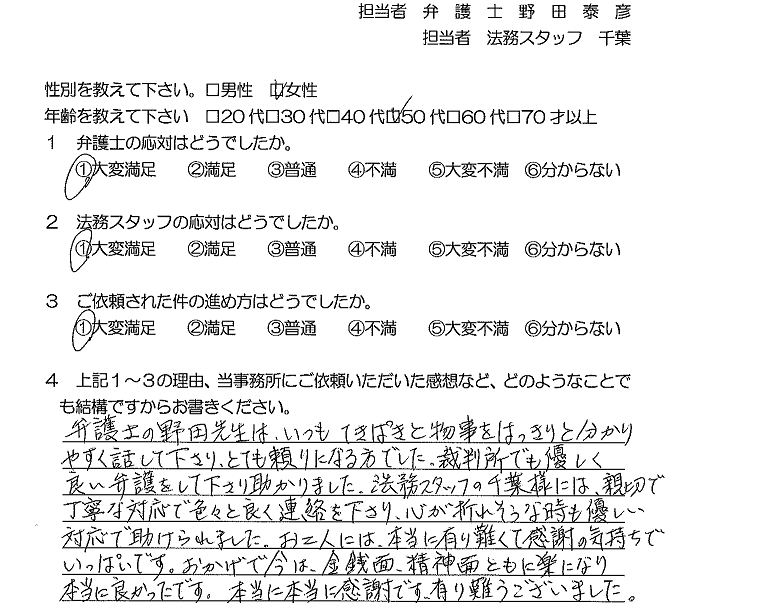 担当者 弁護士野田泰彦
担当者 法務スタッフ 千葉
性別を教えて下さい。□男性 ☑女性
年齢を教えて下さい □20代□30代□40代☑50代□60代□70才以上
1 弁護士の応対はどうでしたか。
①大変満足 ②満足 ③普通 ④不満 ⑤大変不満 ⑥分からない
2 法務スタッフの応対はどうでしたか。
①大変満足 ②満足 ③普通 ④不満 ⑤大変不満 ⑥分からない
3 ご依頼された件の進め方はどうでしたか。
①大変満足 ②満足 ③普通 ④不満 ⑤大変不満 ⑥分からない
4 上記1~3の理由、当事務所にご依頼いただいた感想など、どのようなことで
も結構ですからお書きください。
弁護士の野田先生は、いつも てきぱきと物事をはっきりと分かり
やすく話して下さり、とても頼りになる方でした。裁判所でも優しく
良い弁護をして下さり助かりました。法務スタッフの千葉様には、親切で
丁寧な対応で色々と良く連絡を下さり、心が折れそうな時も優しい
対応で助けられました。お二人には、本当に有り難くて感謝の気持ちで
いっぱいです。おかげで今は、金銭面、精神面ともに楽になり
本当に良かったです。 本当に本当に感謝です、有り難うございました。